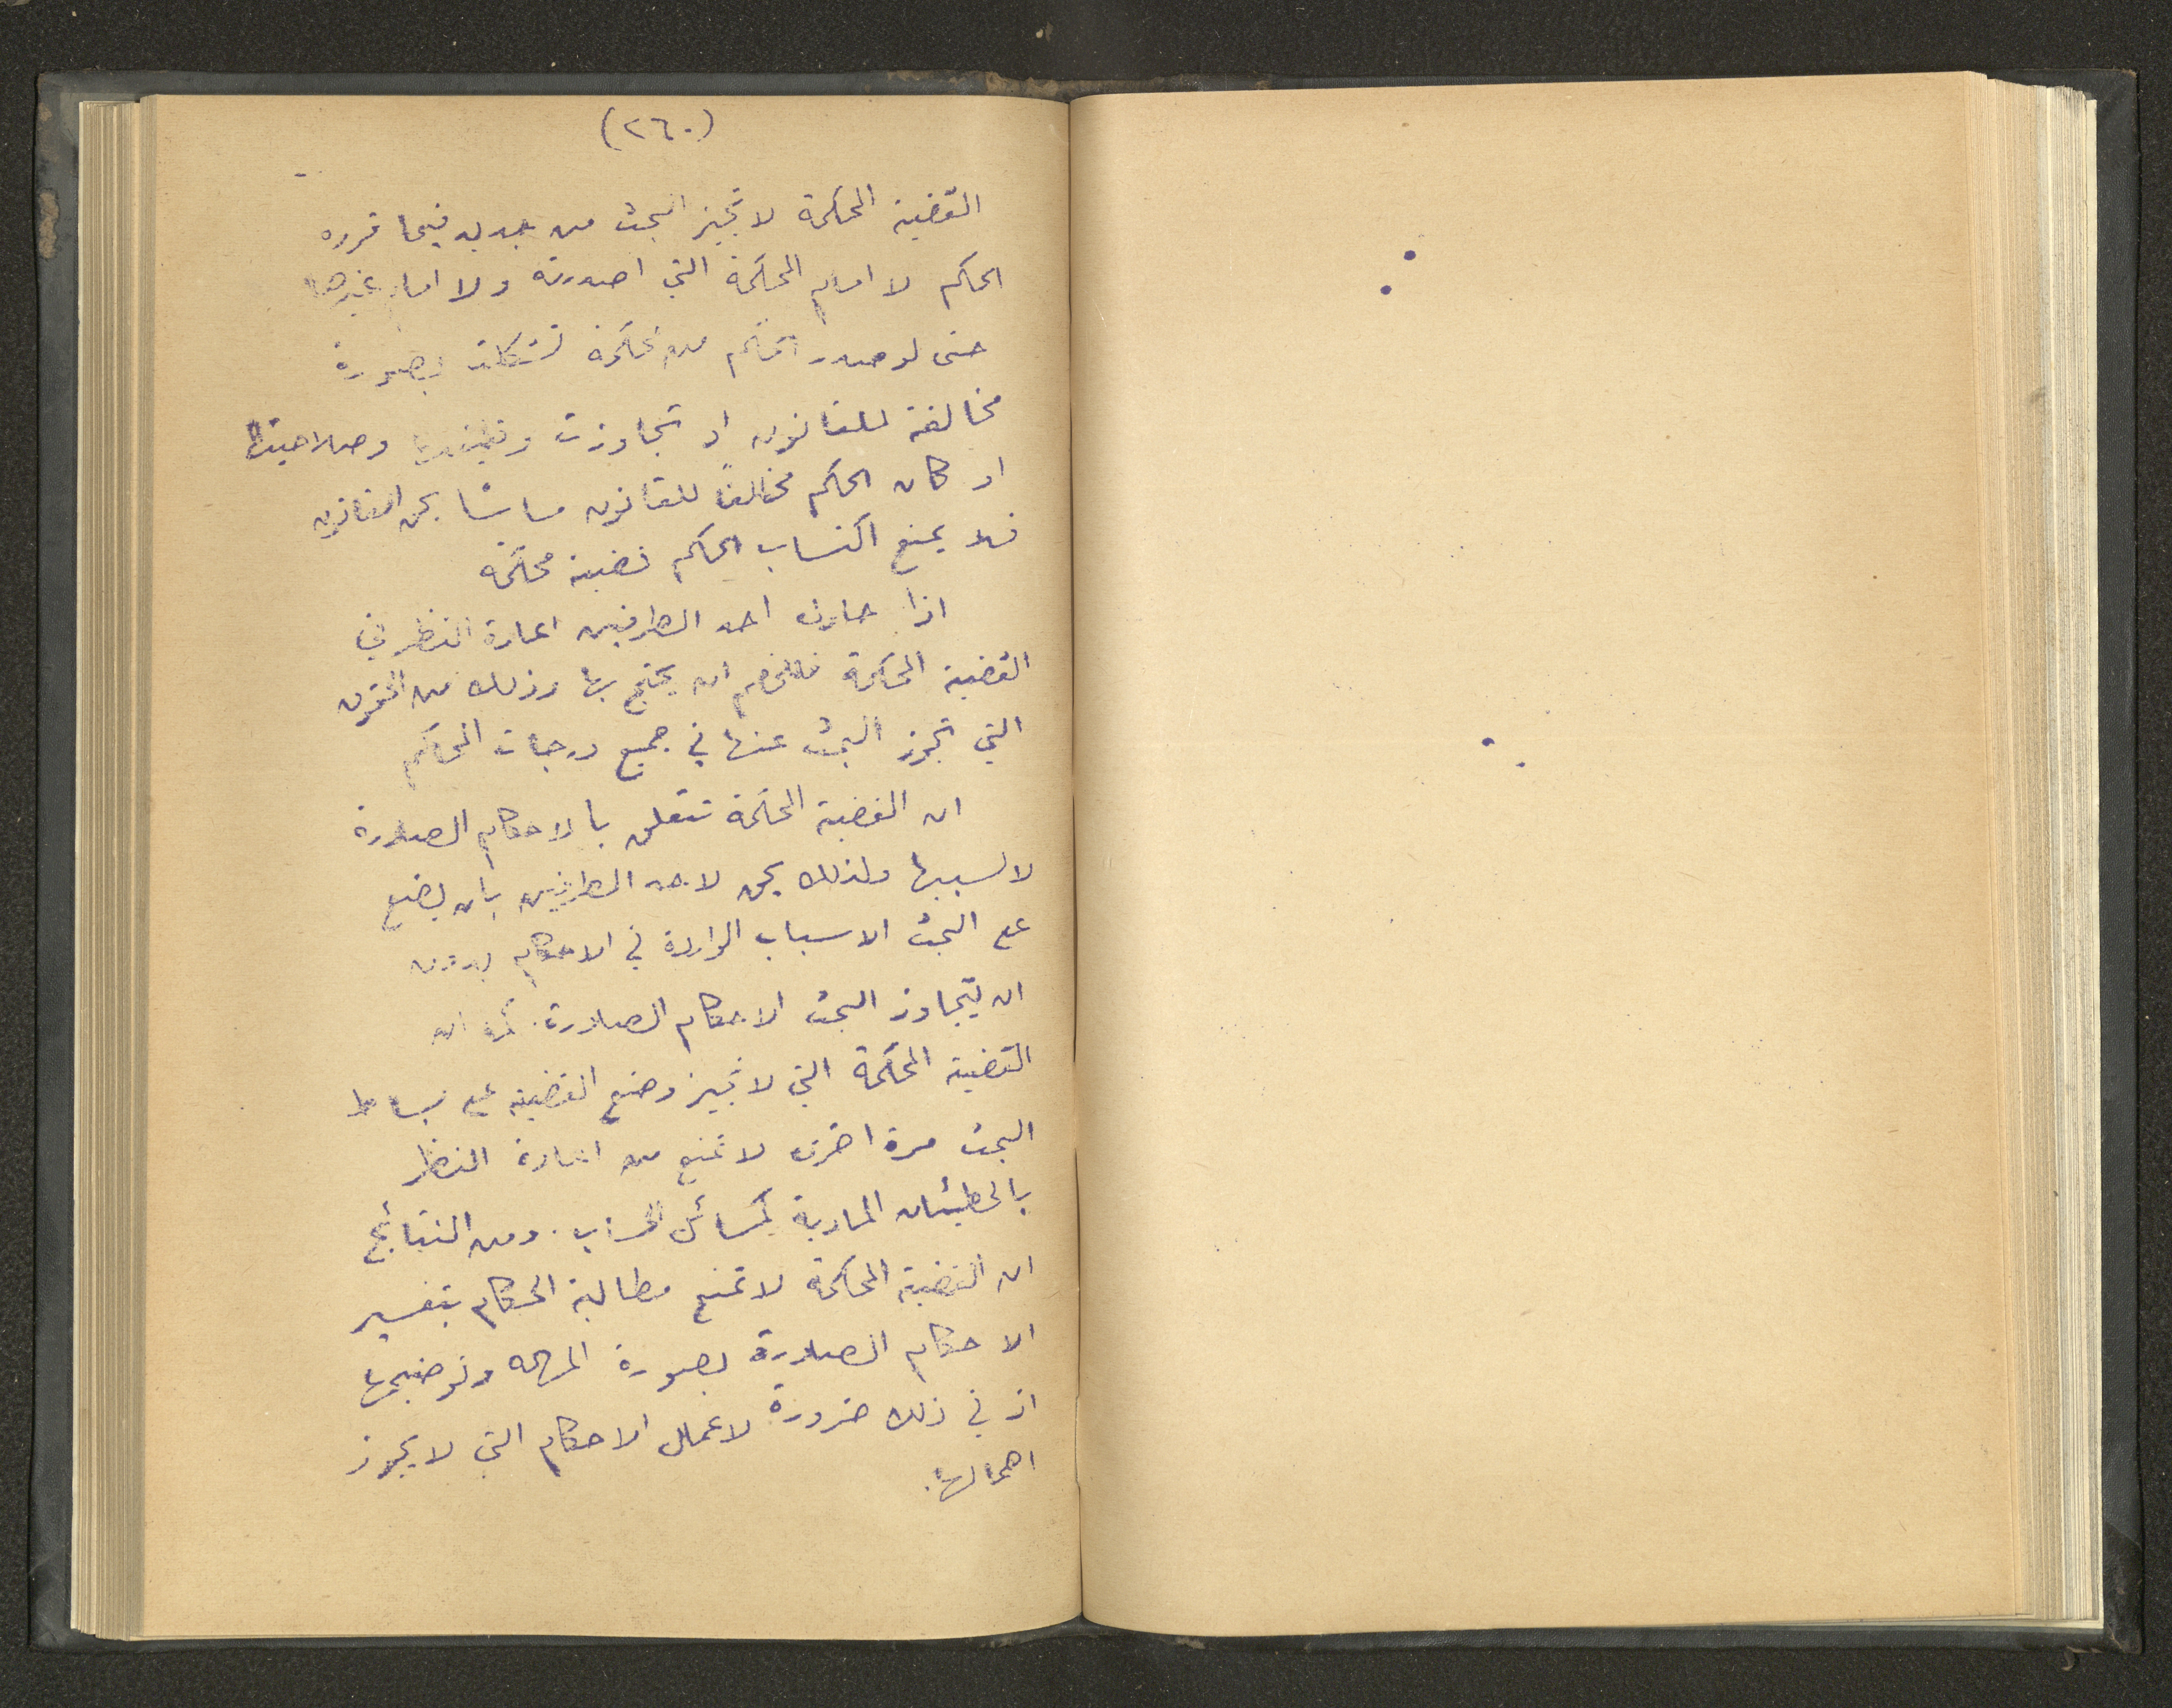 (٢٦٠)
القضية المحكمة لا تجيز البحث من جديد فيما قرره
الحكم لا امام المحكمة التي اصدرته ولا امام غيرها
حتى لو صدر الحكم من محكمة تشكلت بصورة
مخالفة للقانون او تجاوزت وظيفتها وصلاحيتها
او كان الحكم مخالفاً للقانون ماسًا بحق القانون
فلا يمنع اكتساب الحكم قضية محكمة
اذا حاول احد الطرفين اعادة النظر في
القضية المحكمة فللخصم ان يحتج بها وذلك من الحقوق
التي تجوز البحث عنها في جميع درجات المحاكم
ان القضية المحكمة تتعلق بالاحكام الصادرة
لا لسببها ولذلك يحق لاحد الطرفين بان يضع
على البحث الاسباب الواردة في الاحكام بدون
ان يتجاوز البحث الاحكام الصادرة. ثم ان
القضية المحكمة التي لا تجيز وضع القضية على بساط
البحث مرة اخرى لا تمنع من اعادة النظر
بالخطيئات المادية كمسائل الحساب. ومن النتائج
ان القضية المحكمة لا تمنع مطالبة الحكام بتفسير
الاحكام الصادرة بصورة وتوضيحها
اذ في ذلك ضرورة لاعمال الاحكام التي لا يجوز
اهمالها.